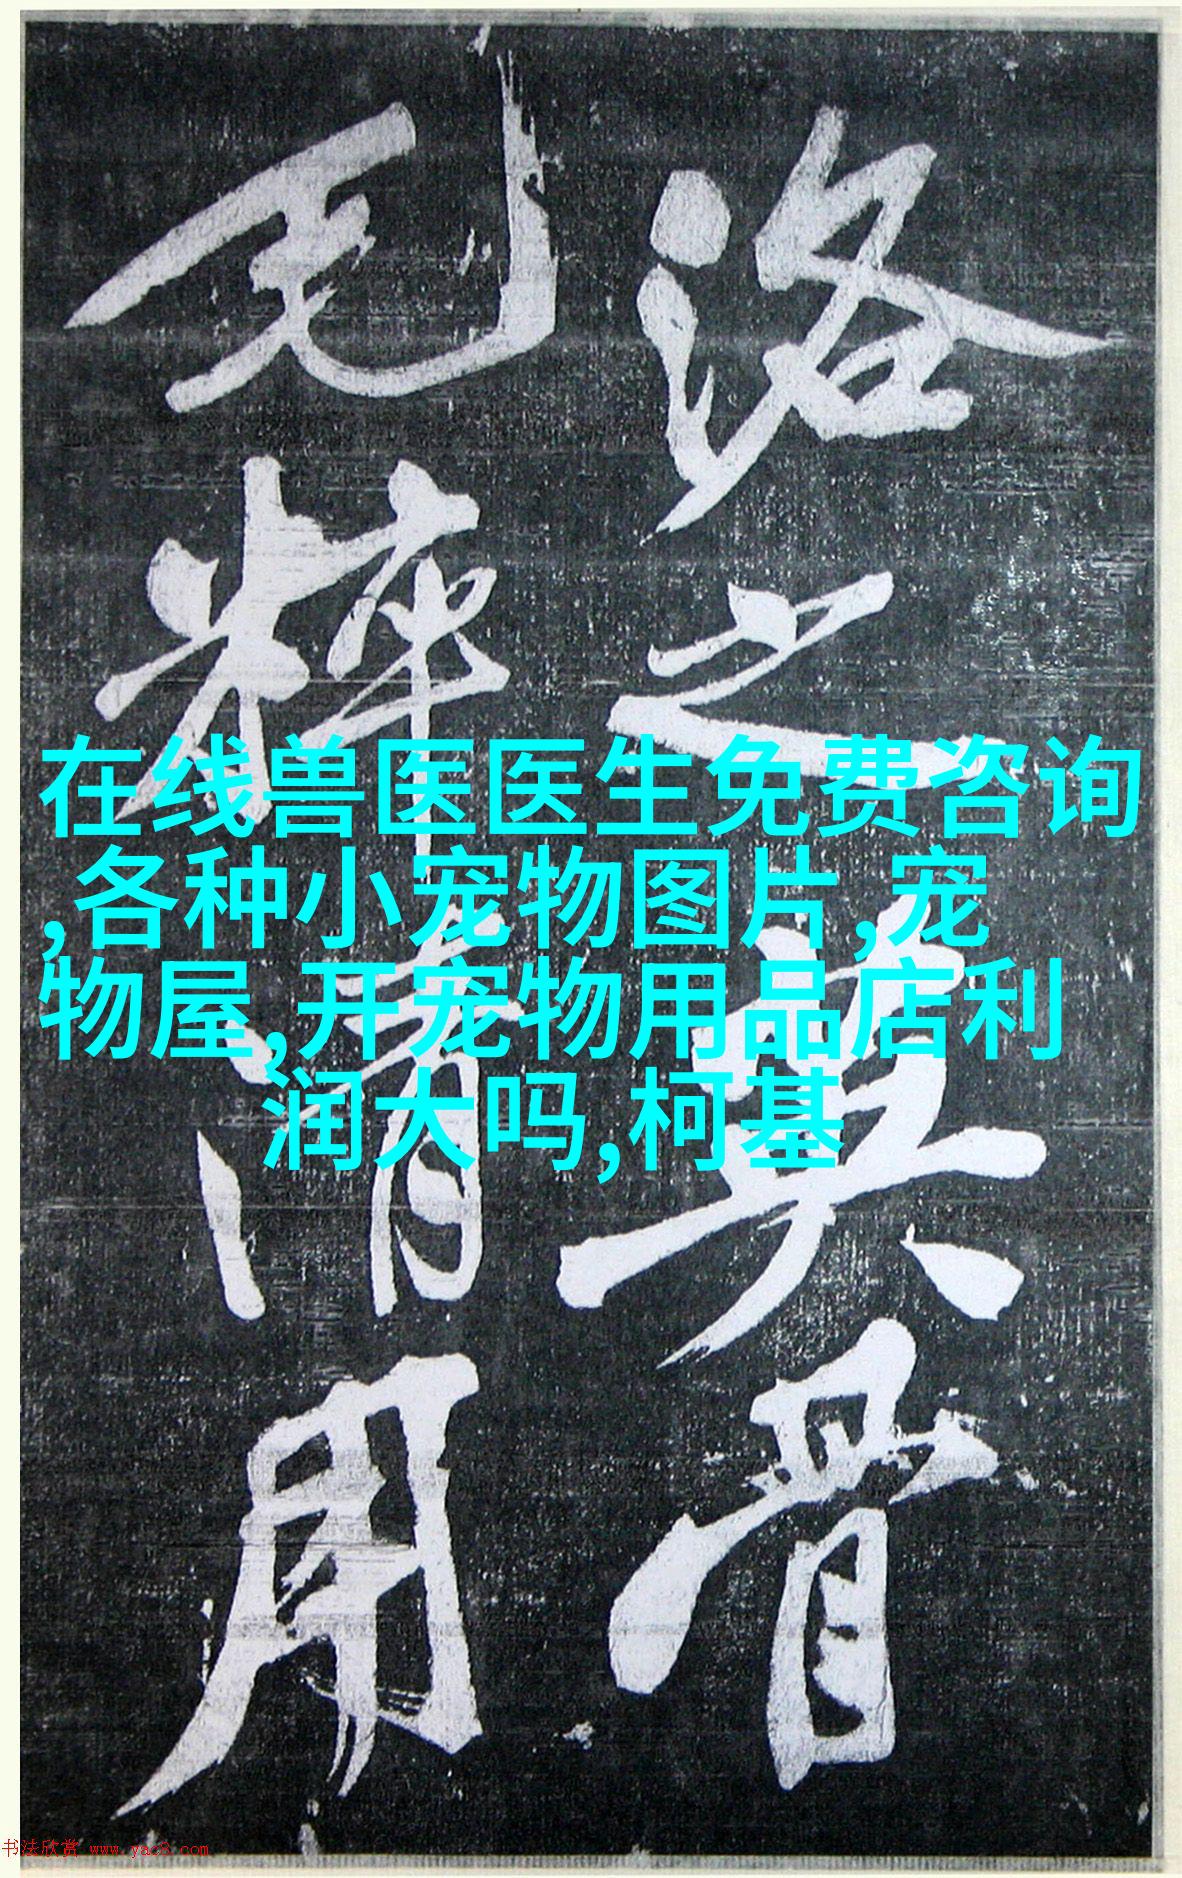 洛之奠骨
毛粹清用
在线兽医医生免费咨询
,各种小宠物图片,宠
物屋,开宠物用品店利
润大吗,柯基
书法欣赏 www.yac8.com